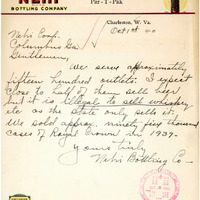 NEHI
BOTTLING COMPANY
Par-T-Pak
Charleston, W. Va.
Oct 1st 40
Nehi Corp.
Columbus Ga.
Gentlemen,
We serve approximately
fifteen hundred outlets. I expect
close to half of them sell beer
but it is illegal to sell whiskey
etc as the State only sell it.
We sold approx. ninety five thousand
cases of Royal Crown in 1939.
Yours truly,
Nehi Bottling Co